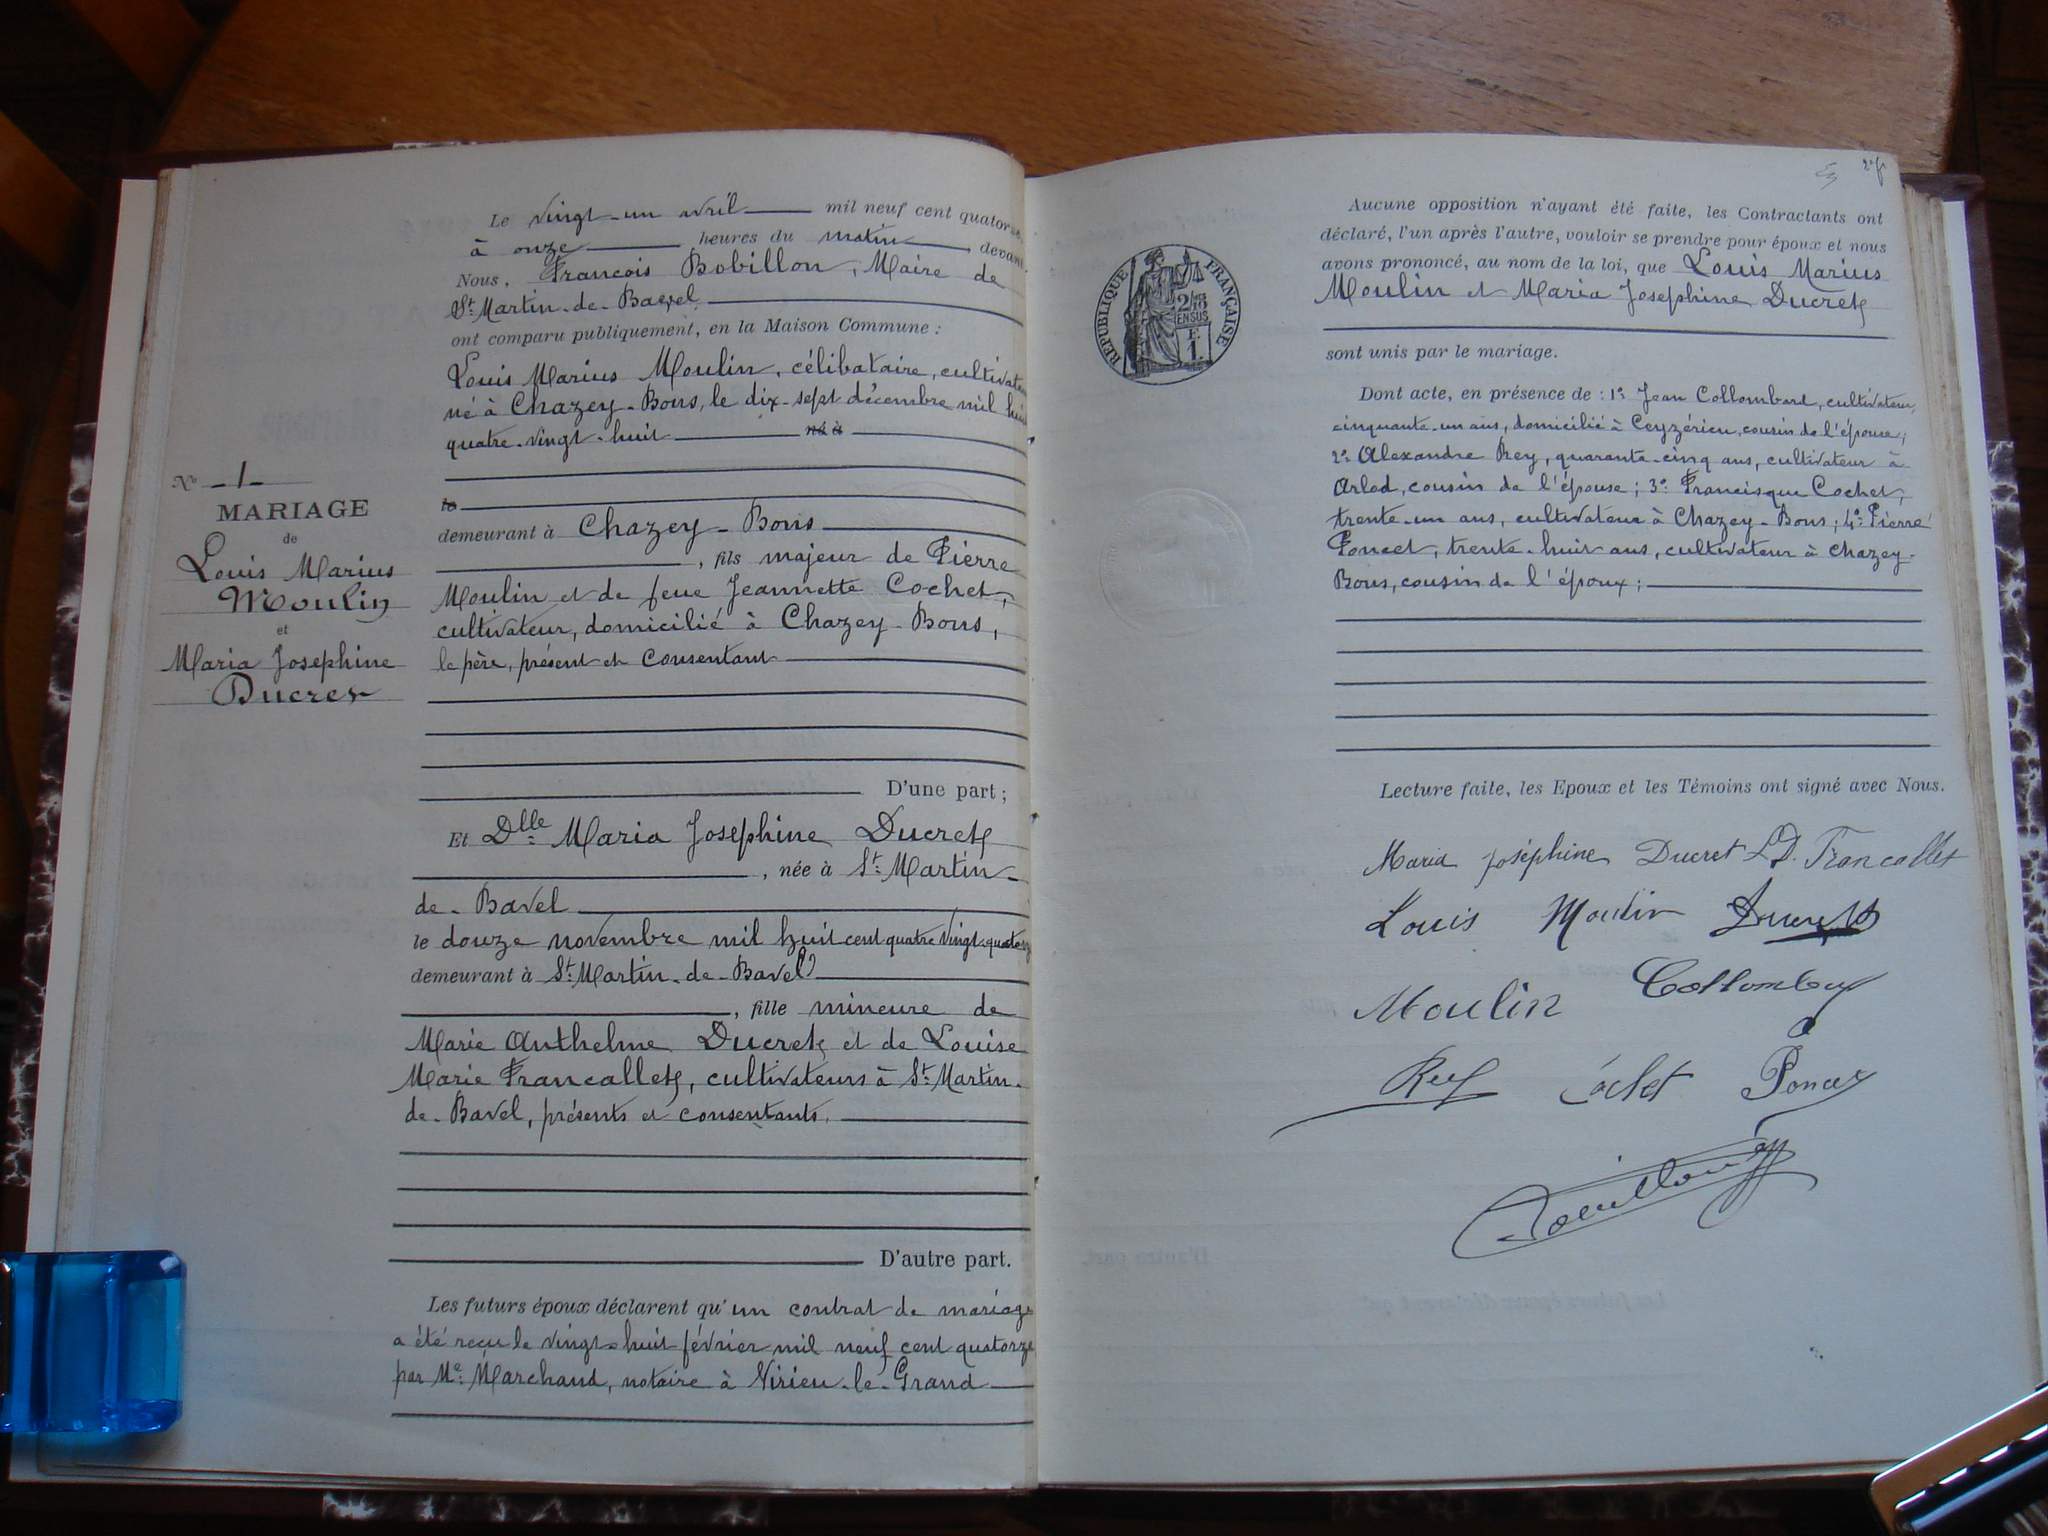 Le vingt-un avril mil neuf cent quatorze,
à onze heures du matin, devant
Nous, François Bobillon, Maire de
St. Martin-de-Bavel
ont comparu publiquement, en la Maison Commune :
Louis Marius Moulin, célibataire, cultivateur
né à Chazey-Bons, le dix-sept décembre mil huit
quatre-vingt-huit né à
le
demeurant à Chazey-Bons
, fils majeur de Pierre
Moulin et de feue Jeannette Cochet,
cultivateur, domicilié à Chazey-Bons,
le père, présent et consentant
D'une part ;
Et Dlle Maria Josephine Ducret
, née à St. Martin-
de-Bavel
le douze novembre mil huit cent quatre vingt-quatorze
demeurant à St. Martin-de-Bavel
, fille mineure de
Marie Anthelme Ducret et de Louise
Marie Francallet, cultivateurs à St. Martin-
de-Bavel, présents et consentants.
D'autre part.
Les futurs époux déclarent qu'un contrat de mariage
a été reçu le vingt-huit février mil neuf cent quatorze
par Me. Marchand, notaire à Virieu-le-Grand
No 1
MARIAGE
de
Louis Marius
Moulin
et
Maria Josephine
Ducret
RÉPUBLIQUE FRANÇAISE
2/10
EN SUS
F.
1.
Aucune opposition n'ayant été faite, les Contractants ont
déclaré, l'un après l'autre, vouloir se prendre pour époux et nous
avons prononcé, au nom de la loi, que Louis Marius
Moulin et Maria Josephine Ducret
sont unis par le mariage.
Dont acte, en présence de : 1° Jean Collombard, cultivateur,
cinquante-un ans, domicilié à Ceyzérieu, cousin de l'épouse ;
2° Alexandre Rey, quarante-cinq ans, cultivateur à
Arlod, cousin de l'épouse ; 3° Francisque Cochet,
trente-un ans, cultivateur à Chazey-Bons ; 4° Pierre
Poncet, trente-huit ans, cultivateur à Chazey-
Bons, cousin de l'époux ;
Lecture faite, les Epoux et les Témoins ont signé avec Nous.
Maria Joséphine Ducret L D. Francallet
Louis Moulin Ducret
Moulin Collombard
Rey Cochet Poncet